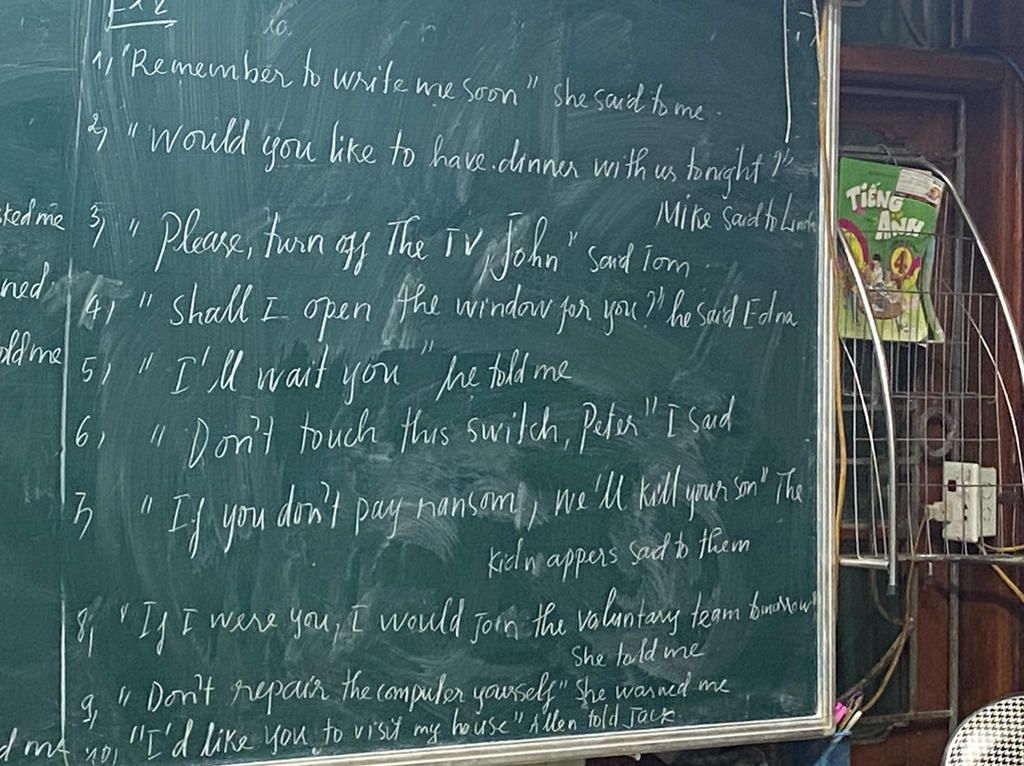 Ex 2
1, "Remember to write me soon" she said to me.
2, "Would you like to have dinner with us tonight?"
Mike said to Linda
3, "Please, turn off The TV, John" said Tom
4, "Shall I open the window for you?" he said Edna
5, "I'll wait you" he told me
6, "Don't touch this switch, Peter" I said
7, "If you don't pay ransom, we'll kill your son" The
kidnappers said to them
8, "If I were you, I would join the voluntary team tomorrow"
She told me
9, "Don't repair the computer yourself" She warned me
10, "I'd like you to visit my house" Allen told Jack
sked me
ned
old me
d me
TIẾNG
ANH
4